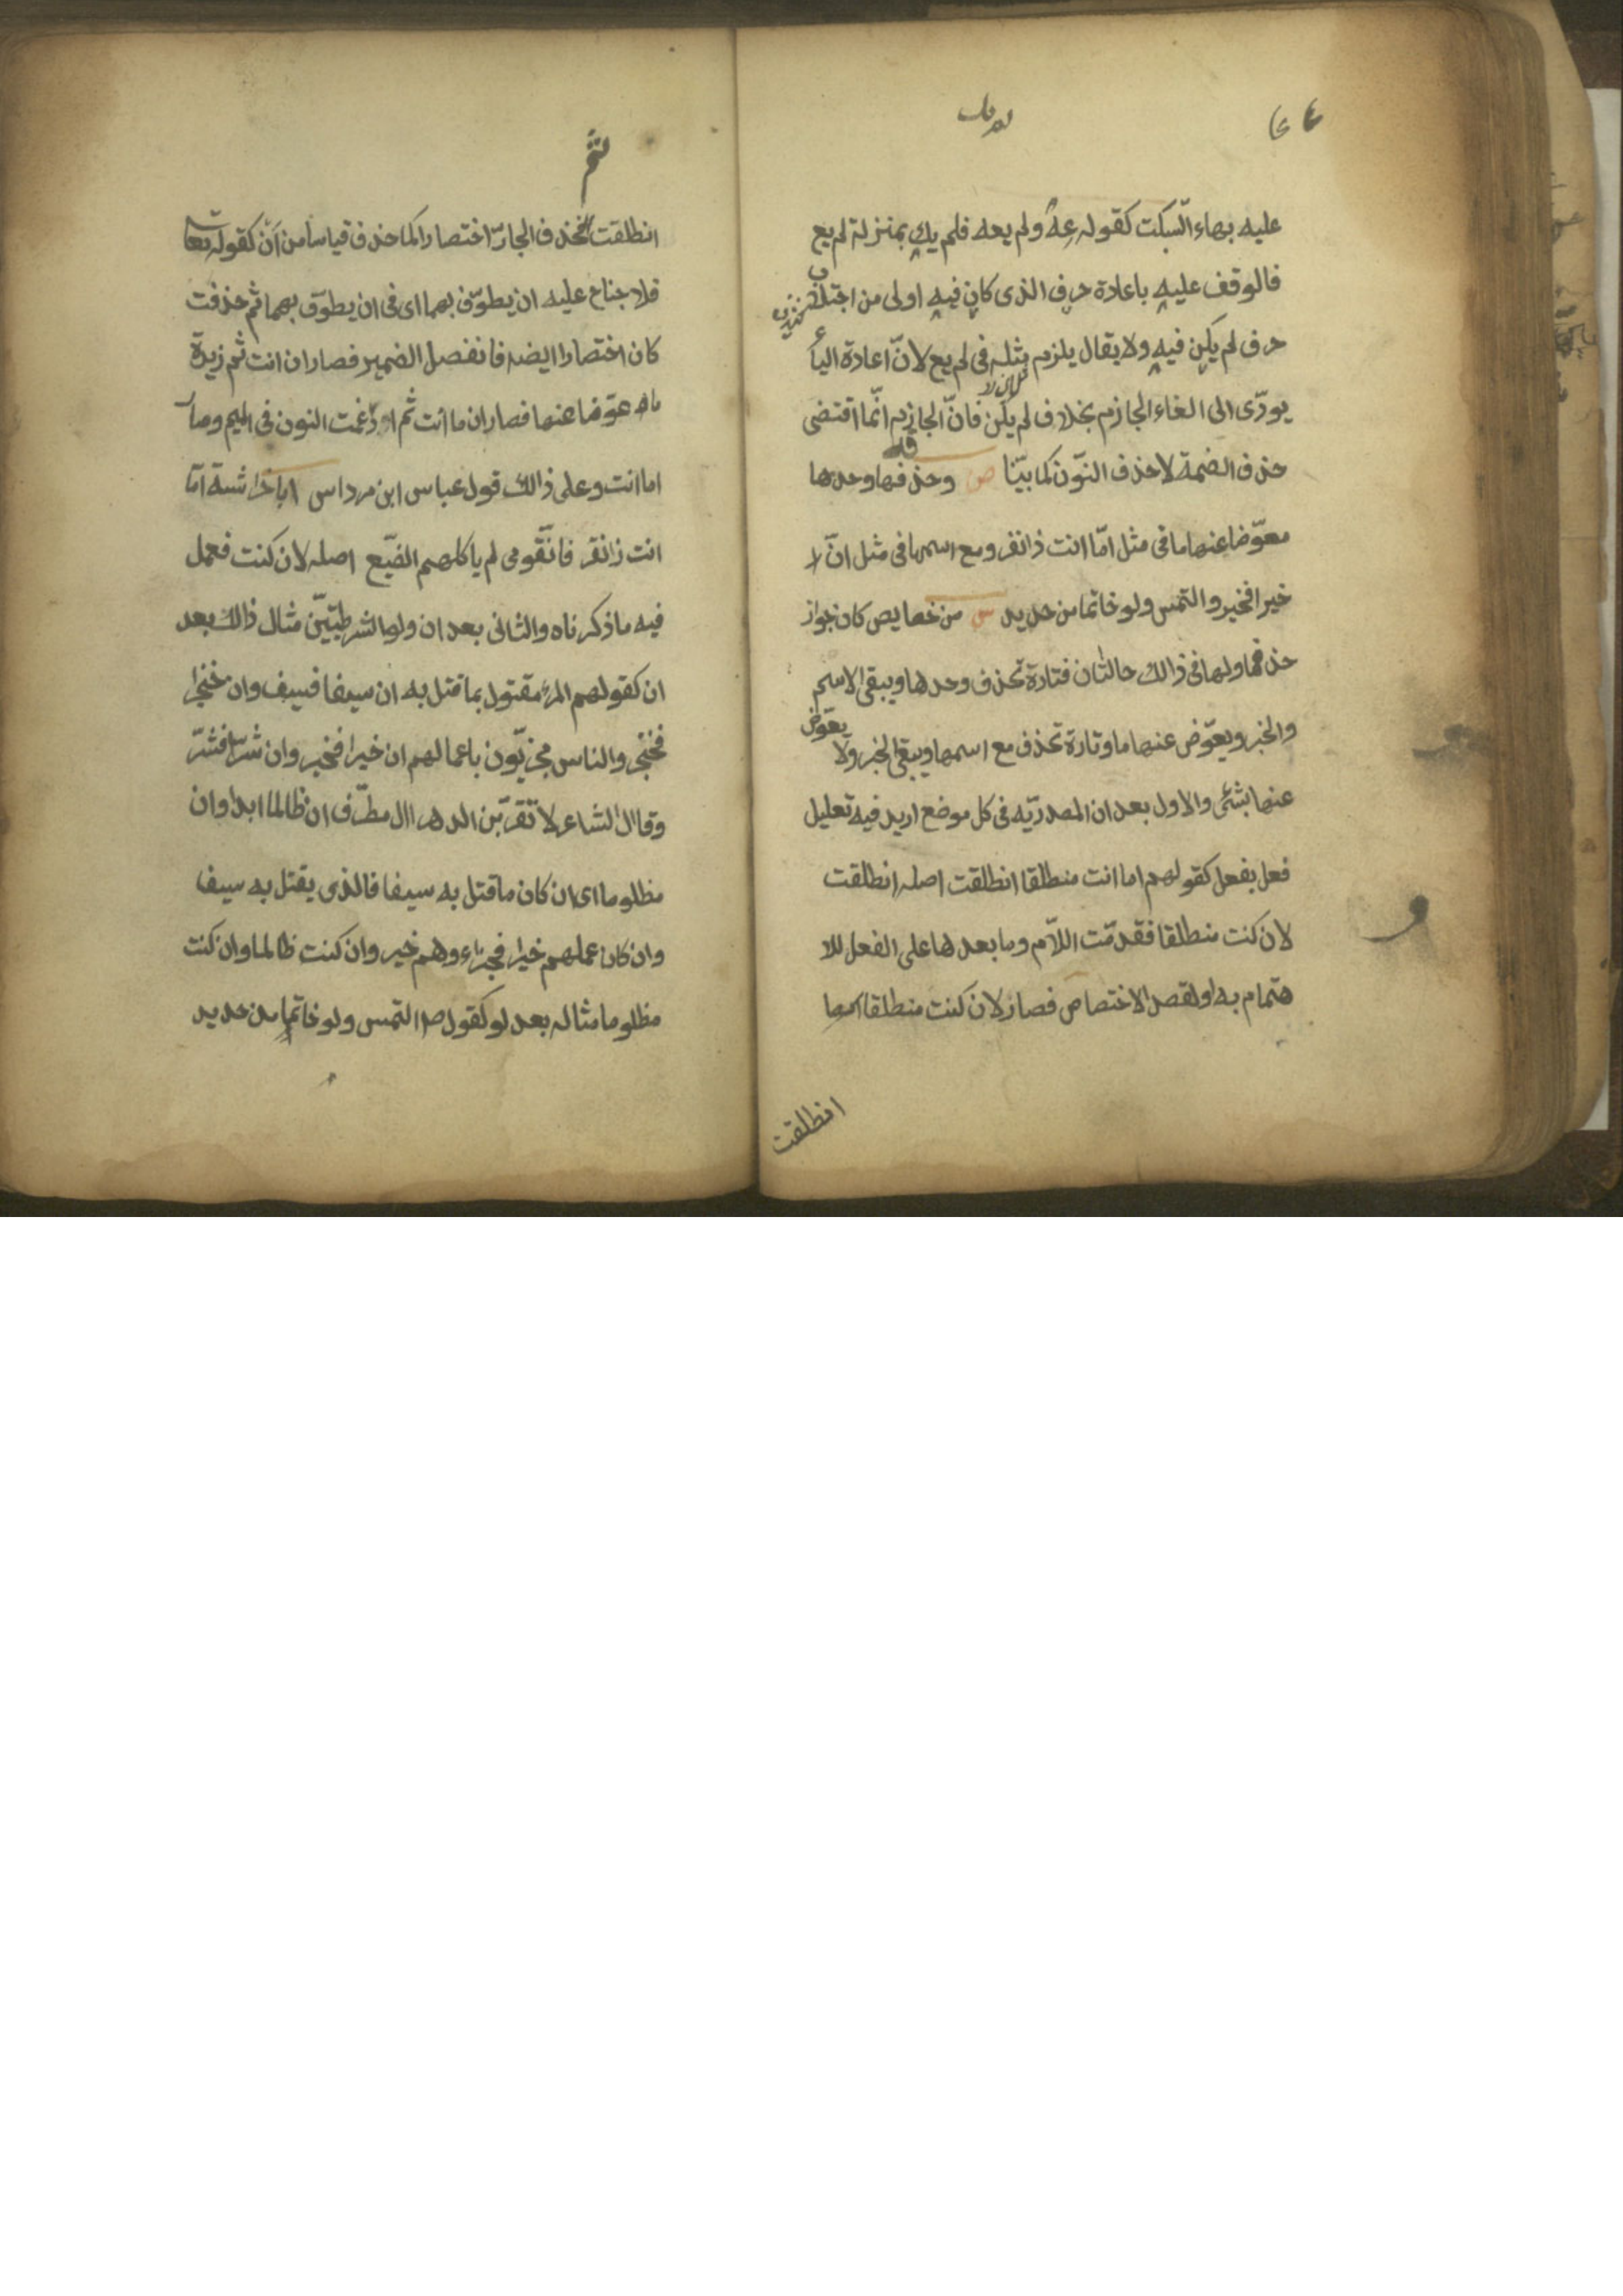 عليه بهاء السّكت كقوله عِهْ ولم يعه فلم يك بمنزلة لم يع
فالوقف عليه باعادة حرف الذى كان فيه اولى من اجتلاب
حرف لم يكن فيه ولا يقال يلزم مثله فى لم يع لانّ اعادة الياء
يودّى الى الغاء الجازم بخلاف لم يكن فانّ الجازم انّما اقتضى
حذف الضمة لا حذف النّون كما بيّنا ص وحذفها وحدها
معوّضا عنها ما فى مثل امّا انت ذا نفر ومع اسمها فى مثل انّ لا
خيرا فخير والتمس ولو خاتما من حديد س من خصايص كان جواز
حذفها ولها فى ذالك حالتان فتارة تحذف وحدها ويبقى الاسم
والخبر ويعوّض عنها ما وتارة تحذف مع اسمها ويبقى الخبر ولا يعوّض
عنها بشئ والاول بعد ان المصدريّه فى كل موضع اريد فيه تعليل
فعل بفعل كقولهم اما انت منطلقا انطلقت اصله انطلقت
لان كنت منطلقا فقدمّت اللاّم وما بعدها على الفعل للا
هتمام به او لقصد الاختصاص فصار لان كنت منطلقا
انطلقت
انطلقت الجارّ اختصارا كما حذف قياسا من اَنْ كقوله تعا
فلا جناح عليه ان يطوّف بهما اى فى ان يطوّف بهما ثم حذفت
كان اختصارا ايضه فانفصل الضمير فصار ان انت ثم زيدة
ما عوّضا عنها فصار ان ما انت ثم ادغمت النون فى الميم وصار
اما انت وعلى ذالك قول عباس ابن مرداس ابا خراشة امّا
انت ذا نفر فانّ قومى لم ياكلهم الضبّع اصله لان كنت فعمل
فيه ما ذكرناه والثانى بعد ان ولو الشرطيّتين مثال ذالك بعد
ان كقولهم المرء مقتول بما قتل به ان سيفا فسيف وان خنجرا
فخنجر والناس مجزيّون باعمالهم ان خيرا فخير وان شرّا فشرّ
وقال الشاعر لا تقربّن الدهر ال مطرّف ان ظالما ابدا وان
مظلوما اى ان كان ما قتل به سيفا فالذى يقتل به سيف
وان كان عملهم خيرا فجزاءوهم خير وان كنت ظالما وان كنت
مظلوما مثاله بعد لو كقول ص التمس ولو خاتما من حديد